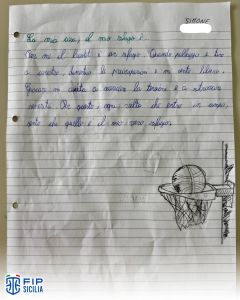 SIMONE
La mia casa, il mio rifugio è...
Per me il basket è un rifugio. Quando palleggio e tiro
a canestro dimentico le preoccupazioni e mi sento libero.
Giocare mi aiuta a scaricare la tensione e a ritrovare
serenità. Per questo, ogni volta che entro in campo,
sento che quello è il mio vero rifugio.
FIP
SICILIA